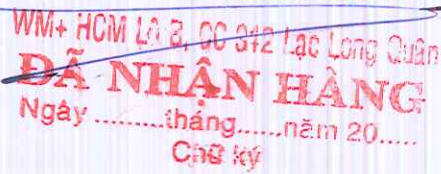 WM+ HCM Lô B, CC 312 Lạc Long Quân
ĐÃ NHẬN HÀNG
Ngày ........tháng......năm 20.....
Chữ ký